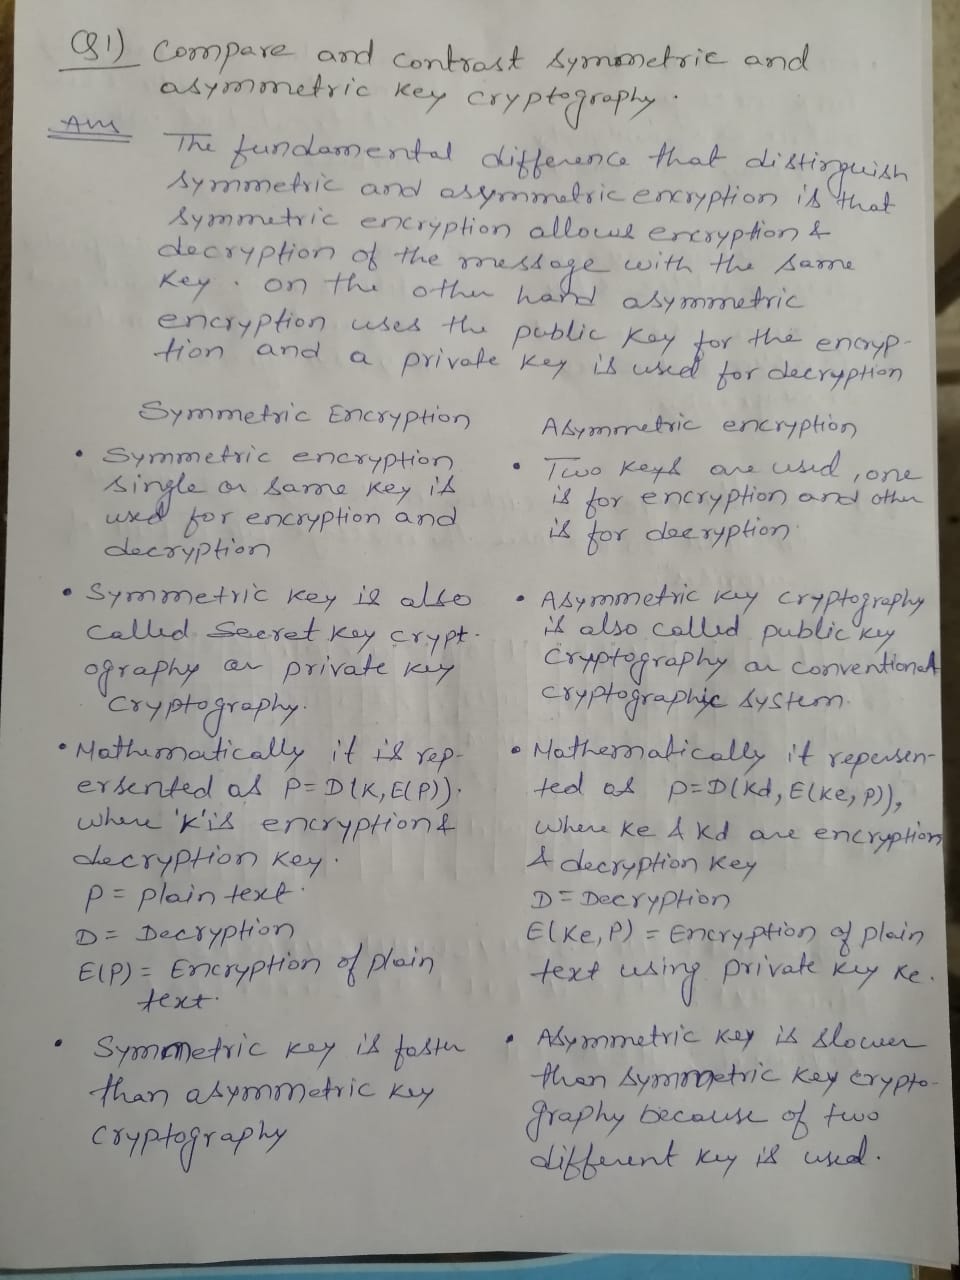 Q1) Compare and contrast symmetric and
asymmetric key cryptography.
Ans The fundamental difference that distinguish
symmetric and asymmetric encryption is that
symmetric encryption allows encryption &
decryption of the message with the same
key. on the other hand asymmetric
encryption uses the public key for the encryp-
tion and a private key is used for decryption
Symmetric Encryption
• Symmetric encryption
single or same key is
used for encryption and
decryption
• Symmetric key is also
called Secret key crypt-
ography or private key
cryptography.
• Mathematically it is rep-
ersented as P=D(K,E(P)).
where 'K' is encryption &
decryption key.
P = plain text.
D = Decryption
E(P) = Encryption of plain
text.
• Symmetric key is faster
than asymmetric key
cryptography
Asymmetric encryption
• Two keys are used, one
is for encryption and other
is for decryption.
• Asymmetric key cryptography
is also called public key
cryptography or conventional
cryptographic system.
• Mathematically it repersen-
ted as P=D(Kd, E(Ke, P)),
where Ke & Kd are encryption
& decryption key
D = Decryption
E(Ke, P) = Encryption of plain
text using private key Ke.
• Asymmetric key is slower
than symmetric key crypto-
graphy because of two
different key is used.